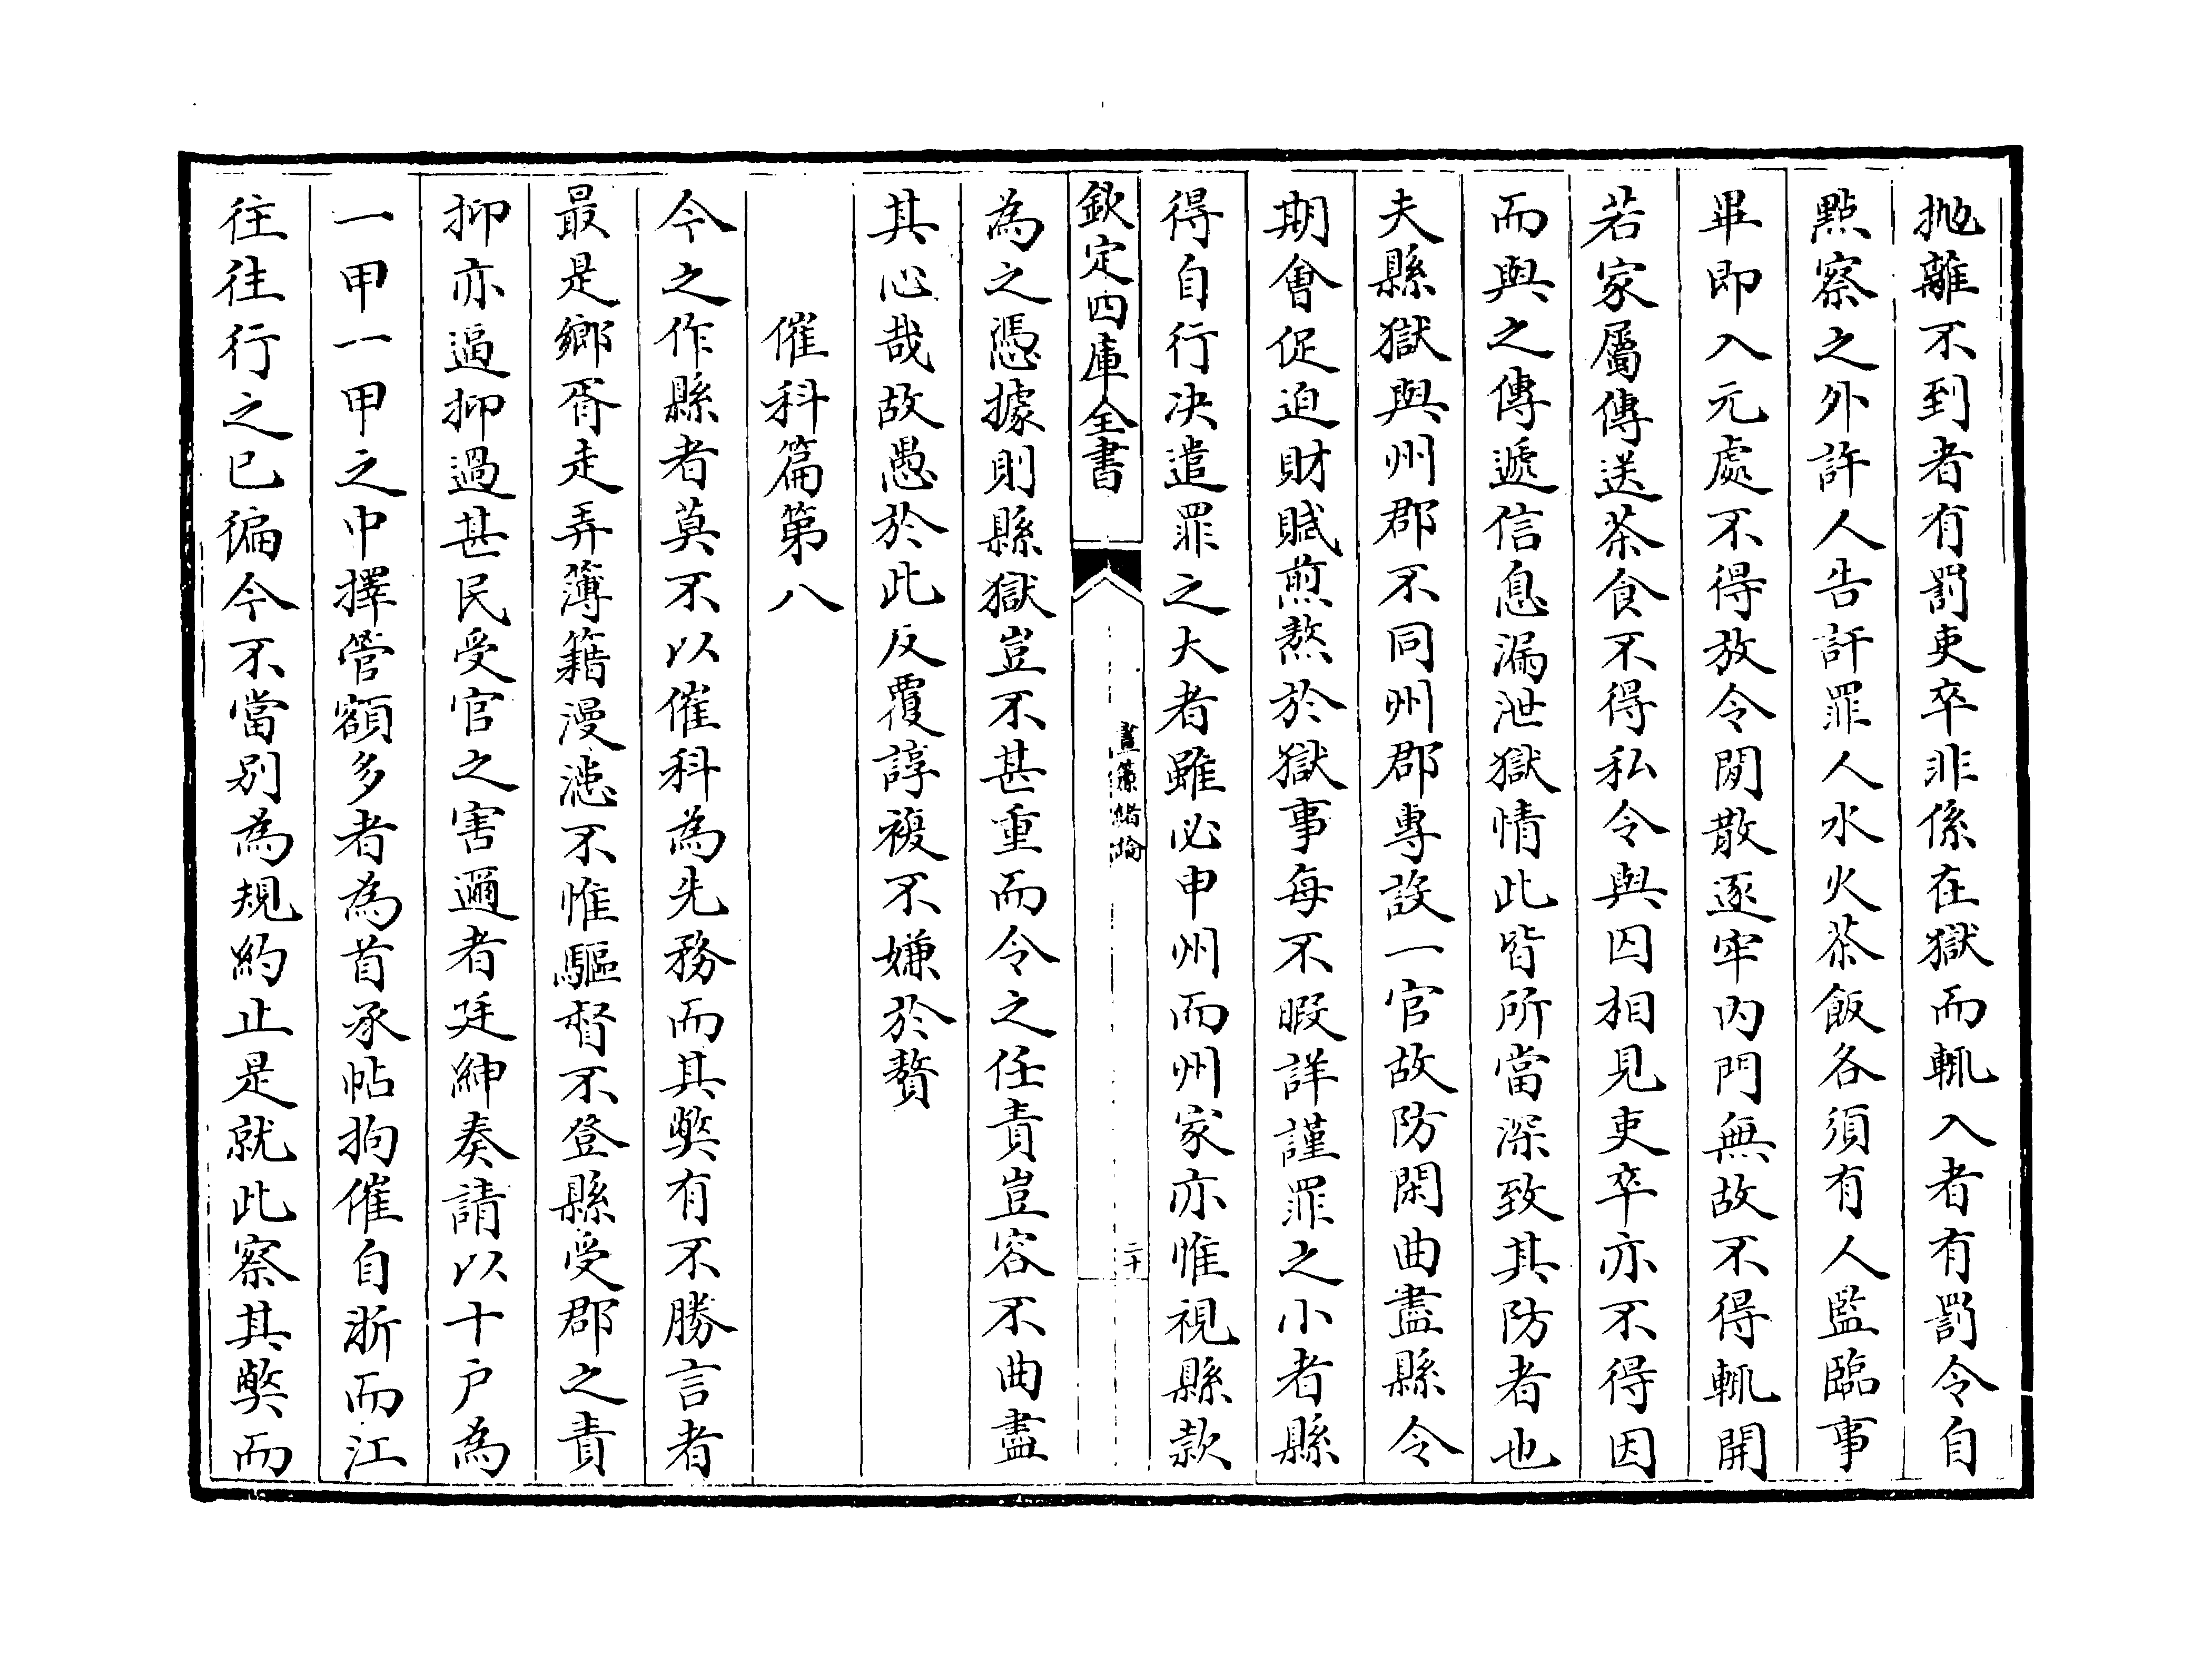 抛離不到者有罰吏卒非係在獄而輒入者有罰令自
點察之外許人告訐罪人水火茶飯各須有人監臨事
畢即入元處不得放令閒散逐牢内門無故不得輒開
若家屬傳送茶食不得私令與囚相見吏卒亦不得因
而與之傳遞信息漏泄獄情此皆所當深致其防者也
夫縣獄與州郡不同州郡專設一官故防閑曲盡縣令
期會促迫財賦煎熬於獄事每不暇詳謹罪之小者縣
得自行决遣罪之大者雖必申州而州家亦惟視縣款
欽定四庫全書
晝簾緒論
二十
為之憑據則縣獄豈不甚重而令之任責豈容不曲盡
其心哉故愚於此反覆諄複不嫌於贅
催科篇第八
今之作縣者莫不以催科為先務而其弊有不勝言者
最是鄉胥走弄簿籍漫漶不惟驅督不登縣受郡之責
抑亦逼抑過甚民受官之害邇者廷紳奏請以十户為
一甲一甲之中擇管額多者為首承帖拘催自浙而江
往往行之已徧今不當别為規約止是就此察其弊而